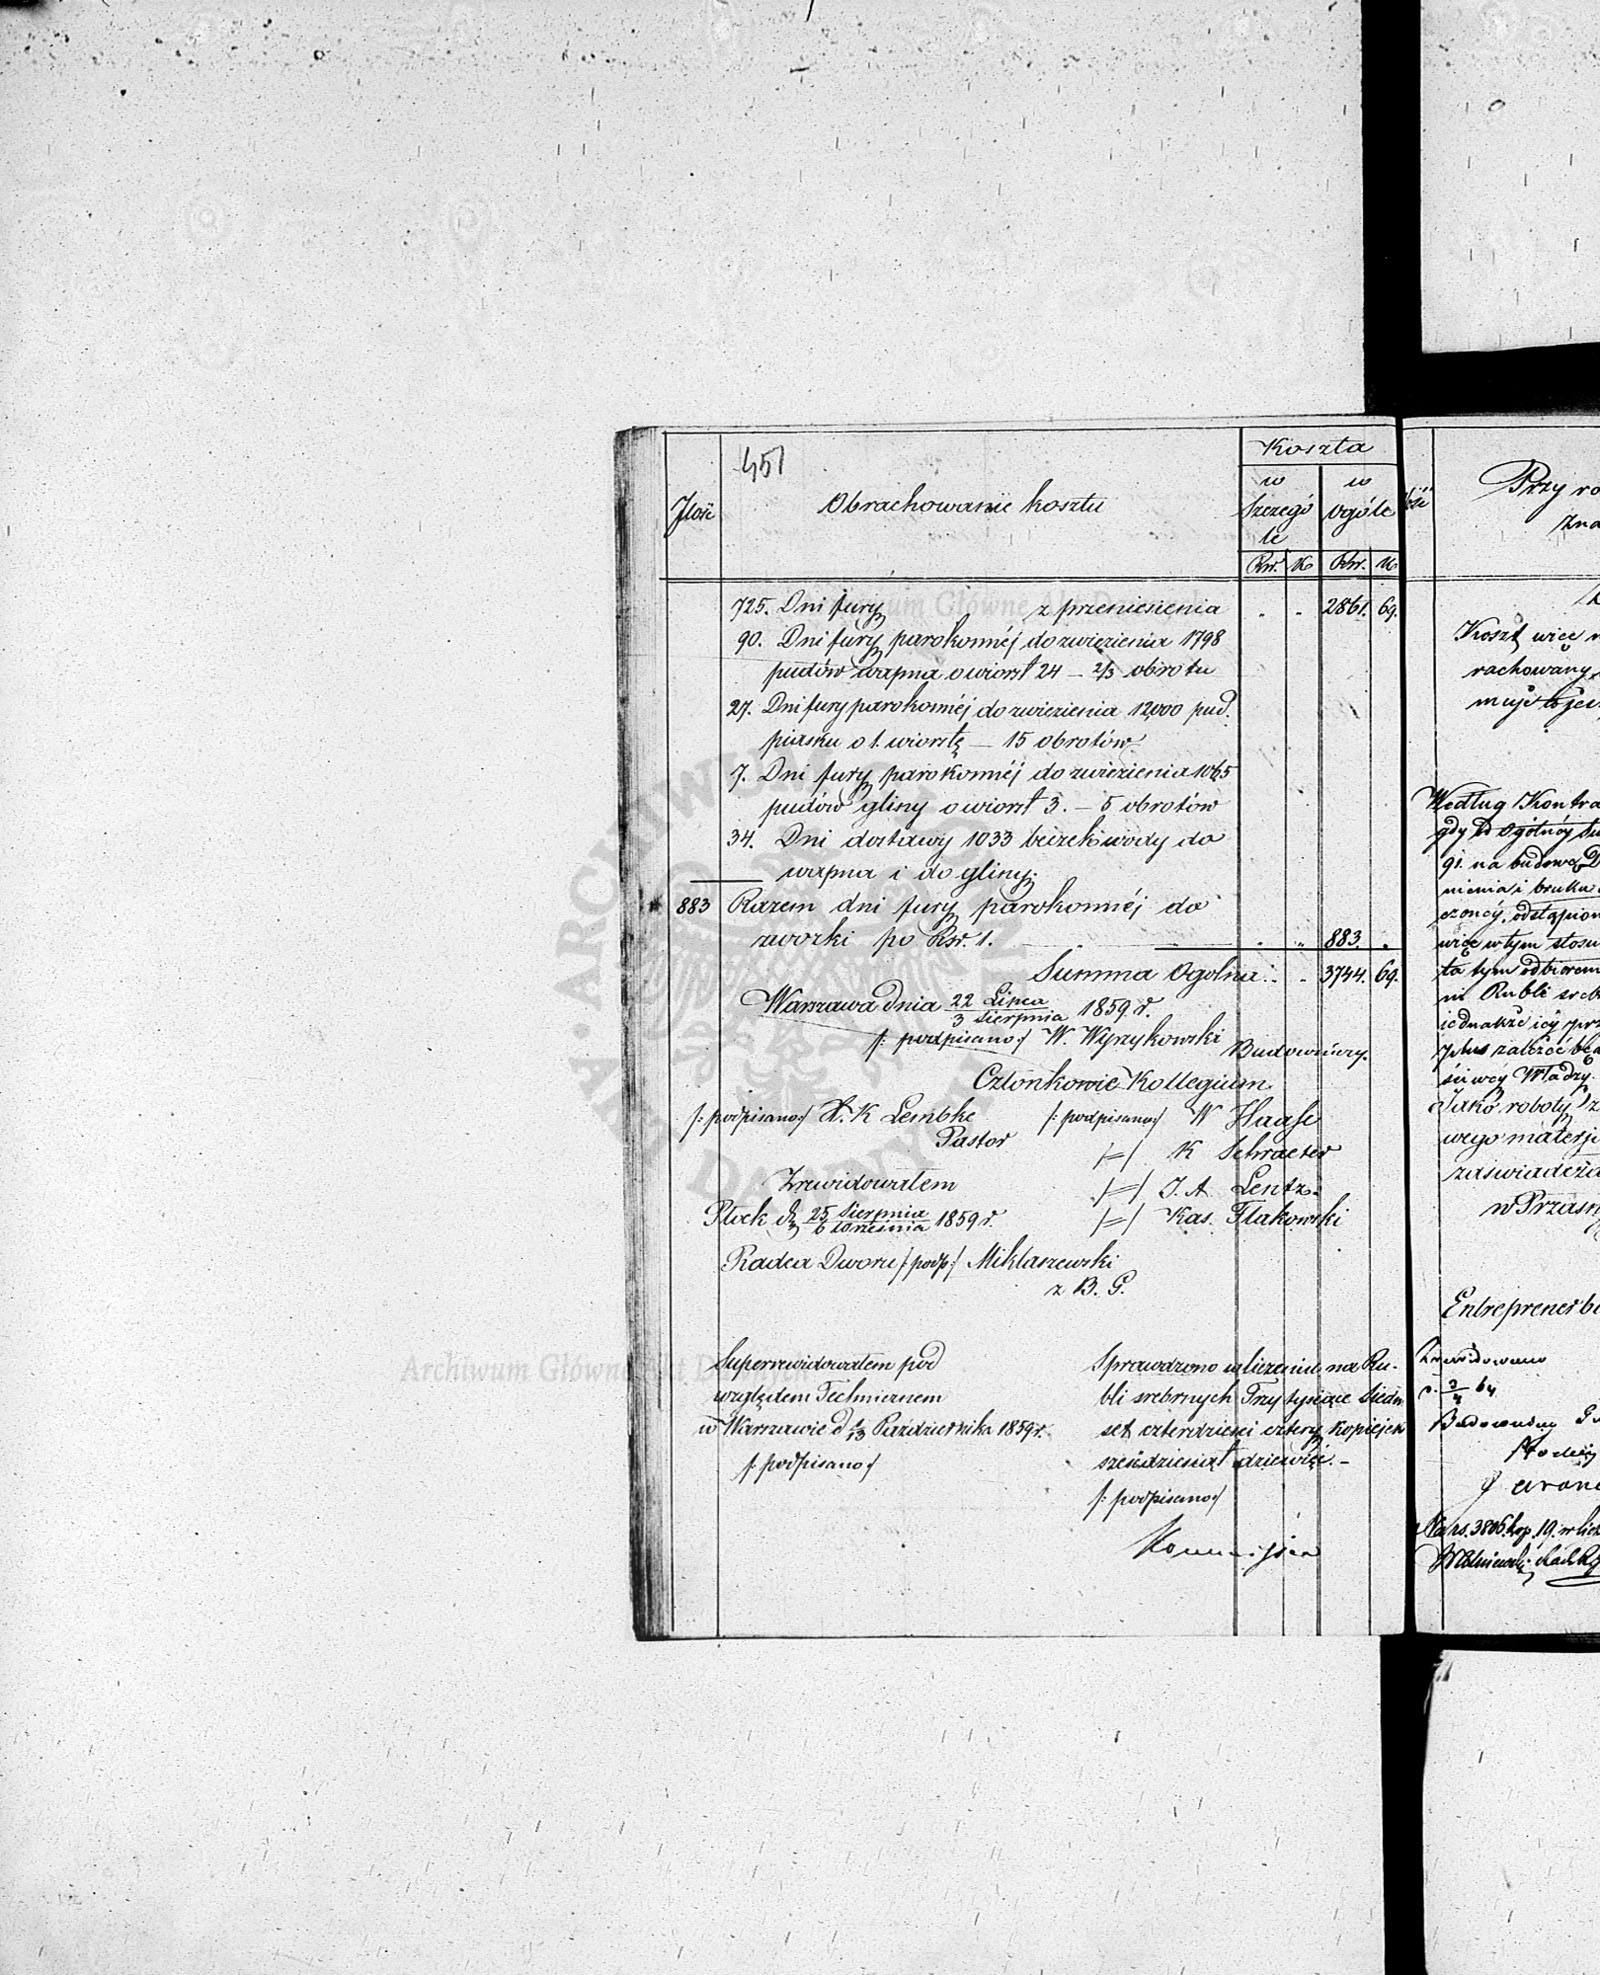 451
Ilość
Obrachowanie kosztu
Koszta
w Szczególe
w ogóle
Rsr. K Rsr. K
725. Dni fury z przeniesienia „ „ 2861. 69.
90. Dni fury parokonnéj do zwiezienia 1798
pudów wapna o wiorst 24 – 2/3 obrotu
27. Dni fury parokonnéj do zwiezienia 12,000 pud.
piasku o 1. wiorstę – 15 obrotów
7. Dni fury parokonnéj do zwiezienia 1065
pudów gliny o wiorst 3. – 5 obrotów
34. Dni dostawy 1033 beczek wody do
wapna i do gliny.
883 Razem dni fury parokonnéj do
zwózki po Rsr. 1. „ „ 883. „
Summa Ogólna „ 3744. 69.
Warszawa dnia 22 Lipca / 3 Sierpnia 1859 r.
/: podpisano :/ W. Wyrzykowski
Budowniczy.
Członkowie Kollegium
/: podpisano :/ K Lembke /: podpisano :/ W Haase
Pastor
/=/ K Schraeter
Zrewidowałem /=/ J. A. Lentz.
Płock d. 25 Sierpnia / 6 Września 1859 r. /=/ Kas. Flakowski
Radca Dworu /: podp :/ Miklaszewski
z B. G.
Superrewidowałem pod
względem Technicznem
w Warszawie d 1/13 Października 1859 r.
/: podpisano :/
Sprawdzono w liczeniu na Ru-
bli srebrnych Trzy tysiące Siedm
set czterdzieści cztery kopiejek
sześćdziesiąt dziewięć. –
/: podpisano :/
Kommissja
Przy ro
zna
Koszt więc
rachowany
muje
Według Kontra
gdy od Ogólnéj Su
gi. na budowę D
nienia i bruku
czonéj, odstąpion
więc w tym stosu
ta tym odbiorem
m Rubli sreb
jednakże jéj prz
plus zależeć bę
ściwéj Władzy.
Jako roboty z
wego materji
zaświadcza
w Przasn
Entreprener b
Zrewidowano
d. 3/4 64
Budowniczy
Na rs. 3806 kop. 19. w licz
Archiwum Główne Akt Dawnych
ARCHIWUM GŁÓWNE AKT DAWNYCH